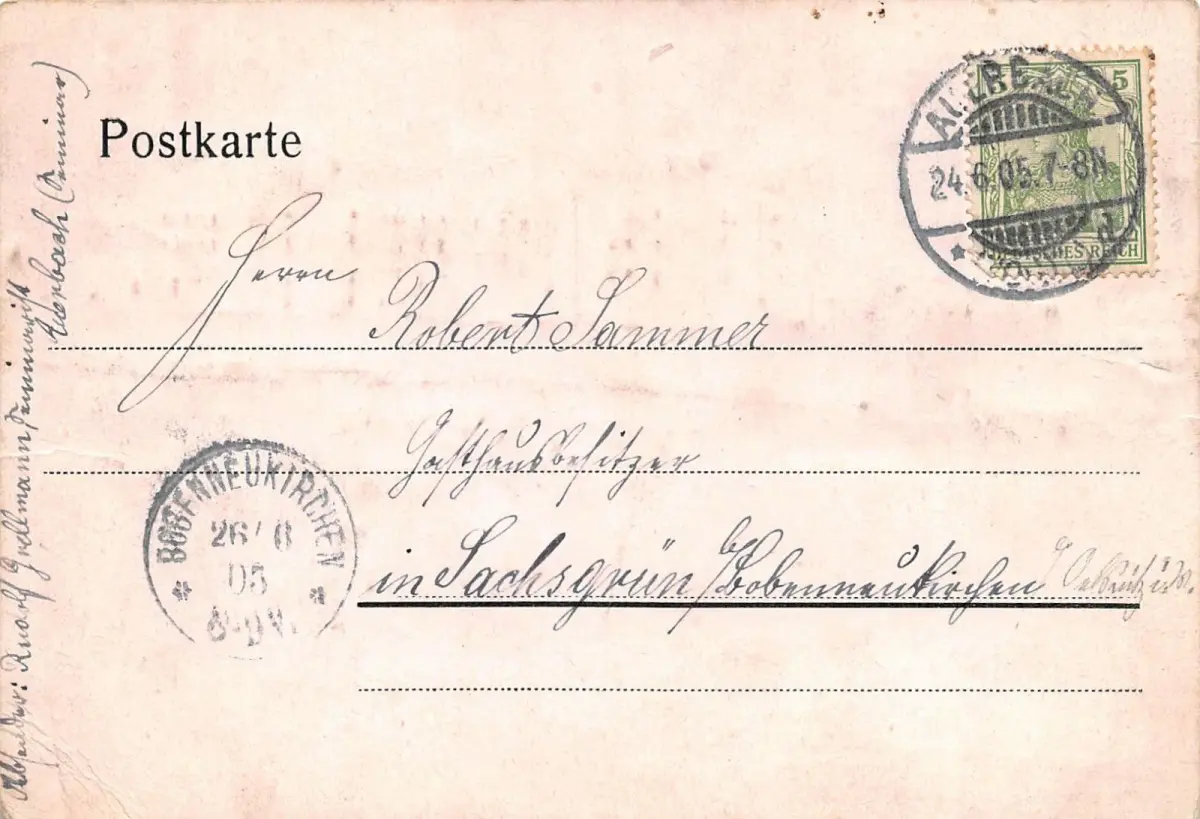 Postkarte
AUERBACH
24.6.05.7-8N
5
5
DEUTSCHES REICH
Herrn
Robert Sammer
Gasthausbesitzer
in Sachsgrün b/Bobenneukirchen
BOBENNEUKIRCHEN
26/6
05
8-9V.
Absender: Rudolf Grellmann, Seminarist
Auerbach (Seminar)